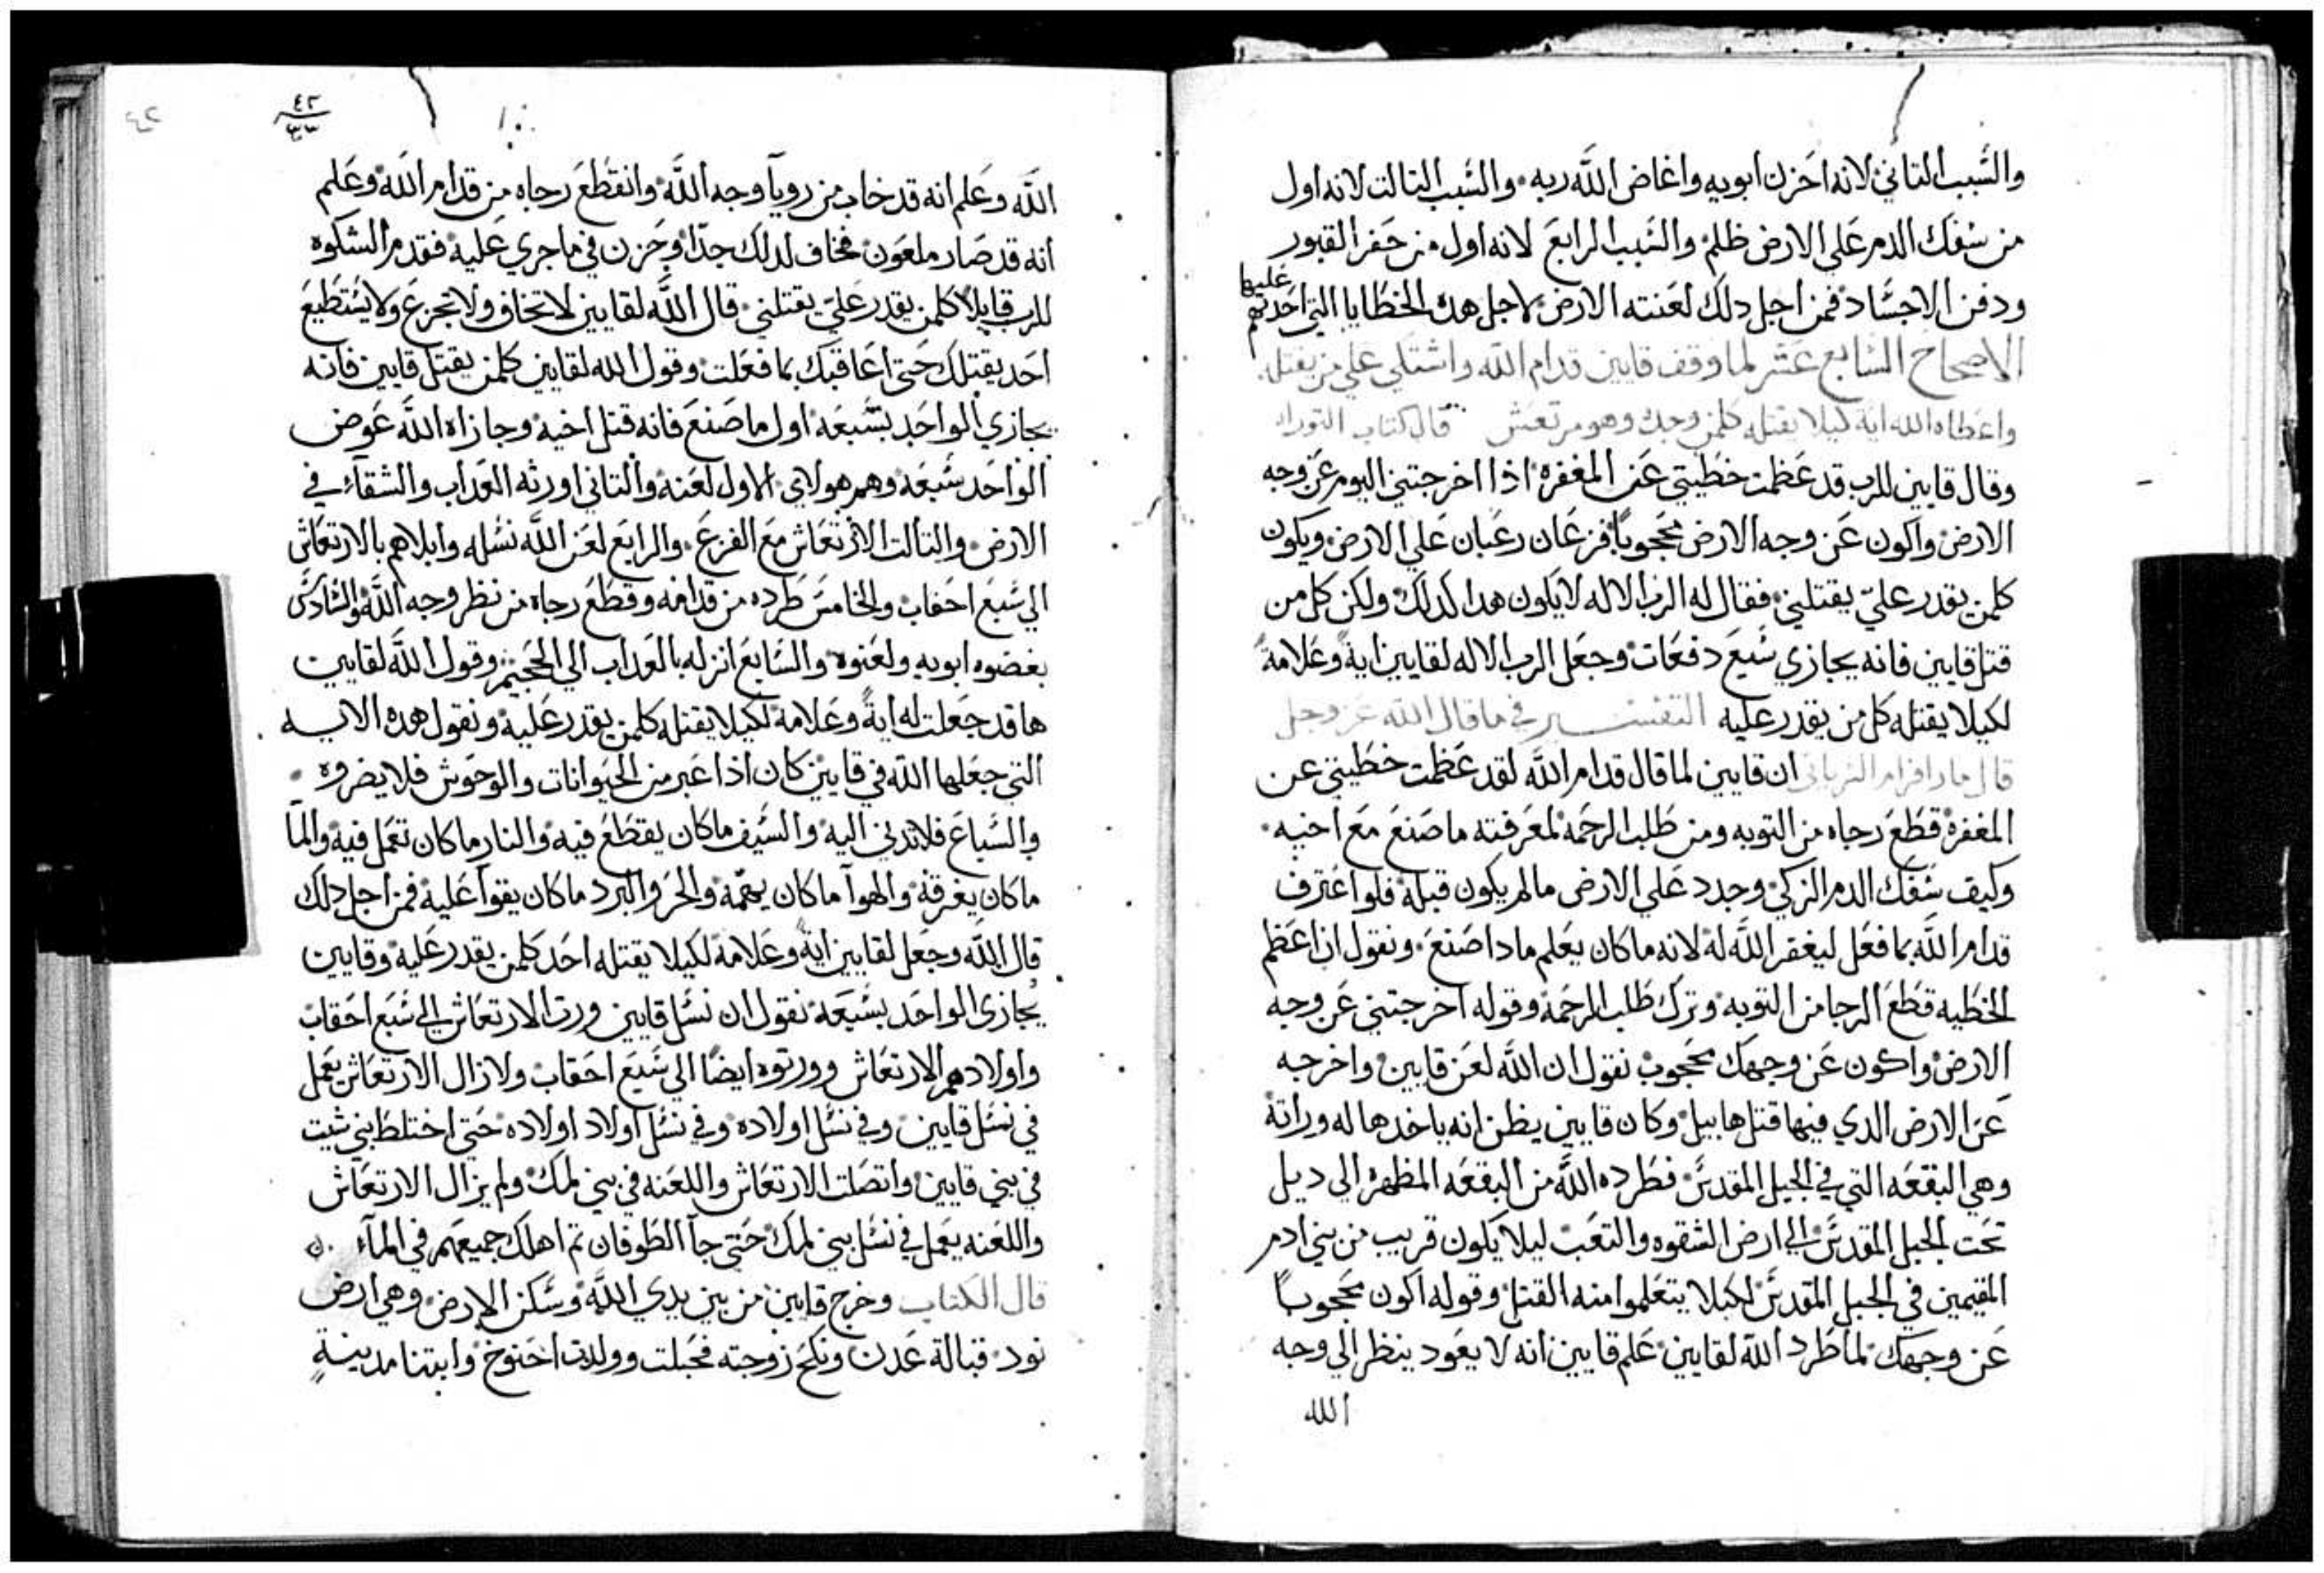 والسبب التاني لانه احزن ابويه واغاض الله ربه والسبب التالت لانه اول
من سفك الدم علي الارض ظلم والسبب الرابع لانه اول من حفر القبور
ودفن الاجساد فمن اجل دلك لعنته الارض لاجل هده الخطايا التي احدتهم
عليها
الاصحاح السابع عشر لما وقف قايين قدام الله واشتكي علي من يقتله
واعطاه الله اية ليلا يقتله كلمن وجده وهو مرتعش قال كتاب التوراه
وقال قايين للرب قد عظمت خطيتي عن المغفره اذا اخرجتني اليوم عن وجه
الارض واكون عن وجه الارض محجوبًا فزعان رعبان علي الارض ويكون
كلمن يقدر عليّ يقتلني فقال له الرب الاله لا يكون هدا كدلك ولكن كل من
قتل قايين فانه يجازي سبع دفعات وجعل الرب الاله لقايين ايةً وعلامةً
لكيلا يقتله كل من يقدر عليه التفسير في ما قال الله عز وجل
قال مار افرام السرياني ان قايين لما قال قدام الله لقد عظمت خطيتي عن
المغفره قطع رجاه من التوبه ومن طلب الرحمه لمعرفته ما صنع مع اخيه
وكيف سفك الدم الزكي وجدد علي الارض ما لم يكون قبله فلو اعترف
قدام الله بما فعل ليغفر الله له لانه ما كان يعلم مادا صنع ونقول ان اعظم
الخطيه قطع الرجا من التوبه وترك طلب الرحمه وقوله اخرجتني عن وجه
الارض واكون عن وجهك محجوب نقول ان الله لعن قايين واخرجه
عن الارض الدي فيها قتل هابيل وكان قايين يظن انه ياخدها له وراتة
وهي البقعه التي في الجبل المقدس فطرده الله من البقعه المطهره الي ديل
تحت الجبل المقدس الي ارض الشقوه والتعب ليلا يكون قريب من بني ادم
المقيمين في الجبل المقدس لكيلا يتعلموا منه القتل وقوله اكون محجوبًا
عن وجهك لما طرد الله لقايين علم قايين انه لا يعود ينظر الي وجه
الله
٤٢
٤٢
٣٣
الله وعلم انه قد خاب من رويا وجه الله وانقطع رجاه من قدام الله وعلم
انه قد صار ملعون فخاف لدلك جدًا وحزن في ما جري عليه فقدم الشكوه
للرب قايلًا كلمن يقدر عليّ يقتلني قال الله لقايين لا تخاف ولا تجزع ولا يستطيع
احد يقتلك حتى اعاقبك بما فعلت وقول الله لقايين كلمن يقتل قايين فانه
يجازي الواحد بسبعه اول ما صنع فانه قتل اخيه وجازاه الله عوض
الواحد سبعه وهم هولاي الاول لعنه والتاني اورثه العداب والشقاء في
الارض والتالت الارتعاش مع الفزع والرابع لعن الله نسله وابلاهم بالارتعاش
الي سبع احقاب والخامس طرده من قدامه وقطع رجاه من نظر وجه الله والسادس
بغضوه ابويه ولعنوه والسابع انزله بالعداب الي الجحيم وقول الله لقايين
ها قد جعلت له ايةً وعلامة لكيلا يقتله كلمن يقدر عليه ونقول هده الايه
التي جعلها الله في قايين كان اذا عبر من الحيوانات والوحوش فلا يضروه
والسباع فلا تدني اليه والسيف ما كان يقطع فيه والنار ما كان تعمل فيه والما
ما كان يغرقه والهوا ما كان يعمّه والحر والبرد ما كان يقوا عليه فمن اجل دلك
قال الله وجعل لقايين ايةً وعلامة لكيلا يقتله احد كلمن يقدر عليه وقايين
يُجازى الواحد بسبعه نقول ان نسل قايين ورت الارتعاش الي سبع احقاب
واولادهم الارتعاش وورتوه ايضًا الي سبع احقاب ولا زال الارتعاش يعمل
في نسل قايين وفي نسل اولاده وفي نسل اولاد اولاده حتي اختلط بني شيت
في بني قايين واتصلت الارتعاش واللعنه في بني لمك ولم يزال الارتعاش
واللعنه يعمل في نسل بني لمك حتي جآ الطوفان تم اهلك جميعهم في المآء
قال الكتاب وخرج قايين من بين يدي الله وسكن الارض وهي ارض
نود قبالة عدن ونكح زوجته فحبلت وولدت احنوخ وابتنا مدينةٍ